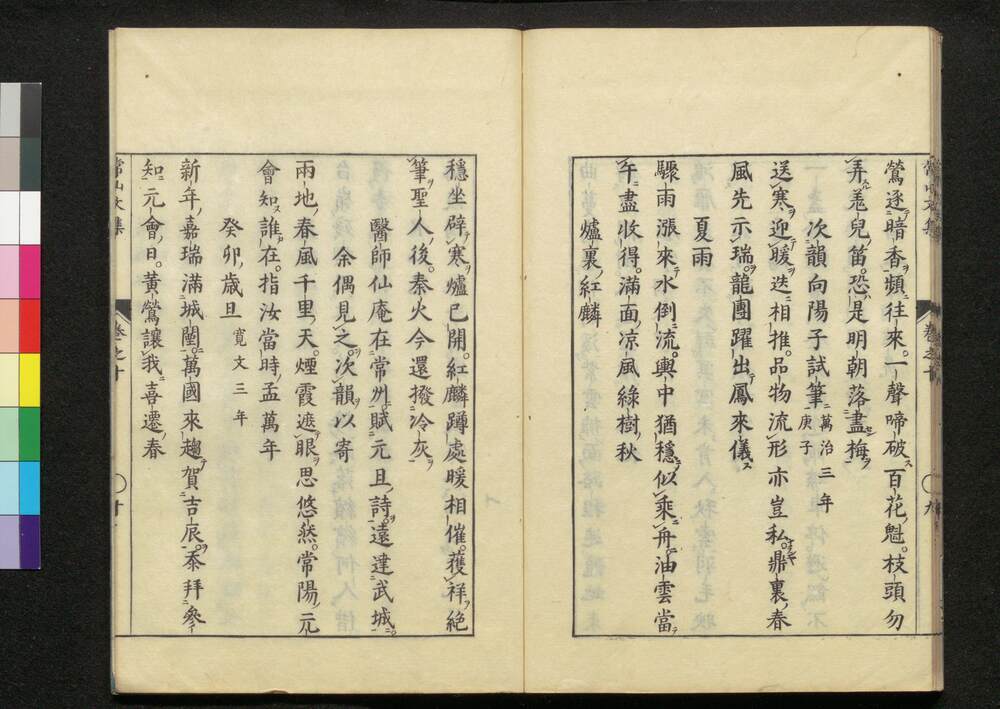 常山文集
卷之十
九
鶯逐暗香頻往來。一聲啼破百花魁。枝頭勿
弄羌兒笛。恐是明朝落盡梅
次韻向陽子試筆 萬治三年庚子
送寒迎暖迭相推。品物流形亦豈私。鼎裏春
風先示瑞。龍團躍出鳳來儀
夏雨
驟雨漲來水倒流。輿中猶穩似乘舟。油雲當
午盡收得。滿面涼風綠樹秋
爐裏紅麟
穩坐辟寒爐已開。紅麟蹲處暖相催。獲祥絕
筆聖人後。秦火今還撥冷灰
醫師仙庵在常州賦元旦詩。遠達武城。
余偶見之。次韻以寄
兩地春風千里天。煙霞遮眼思悠然。常陽元
會知誰在。指汝當時孟萬年
癸卯歲旦 寬文三年
新年嘉瑞滿城闉。萬國來趨賀吉辰。泰拜參
知元會日。黃鶯讓我喜遷春
常山文集
卷之十
十